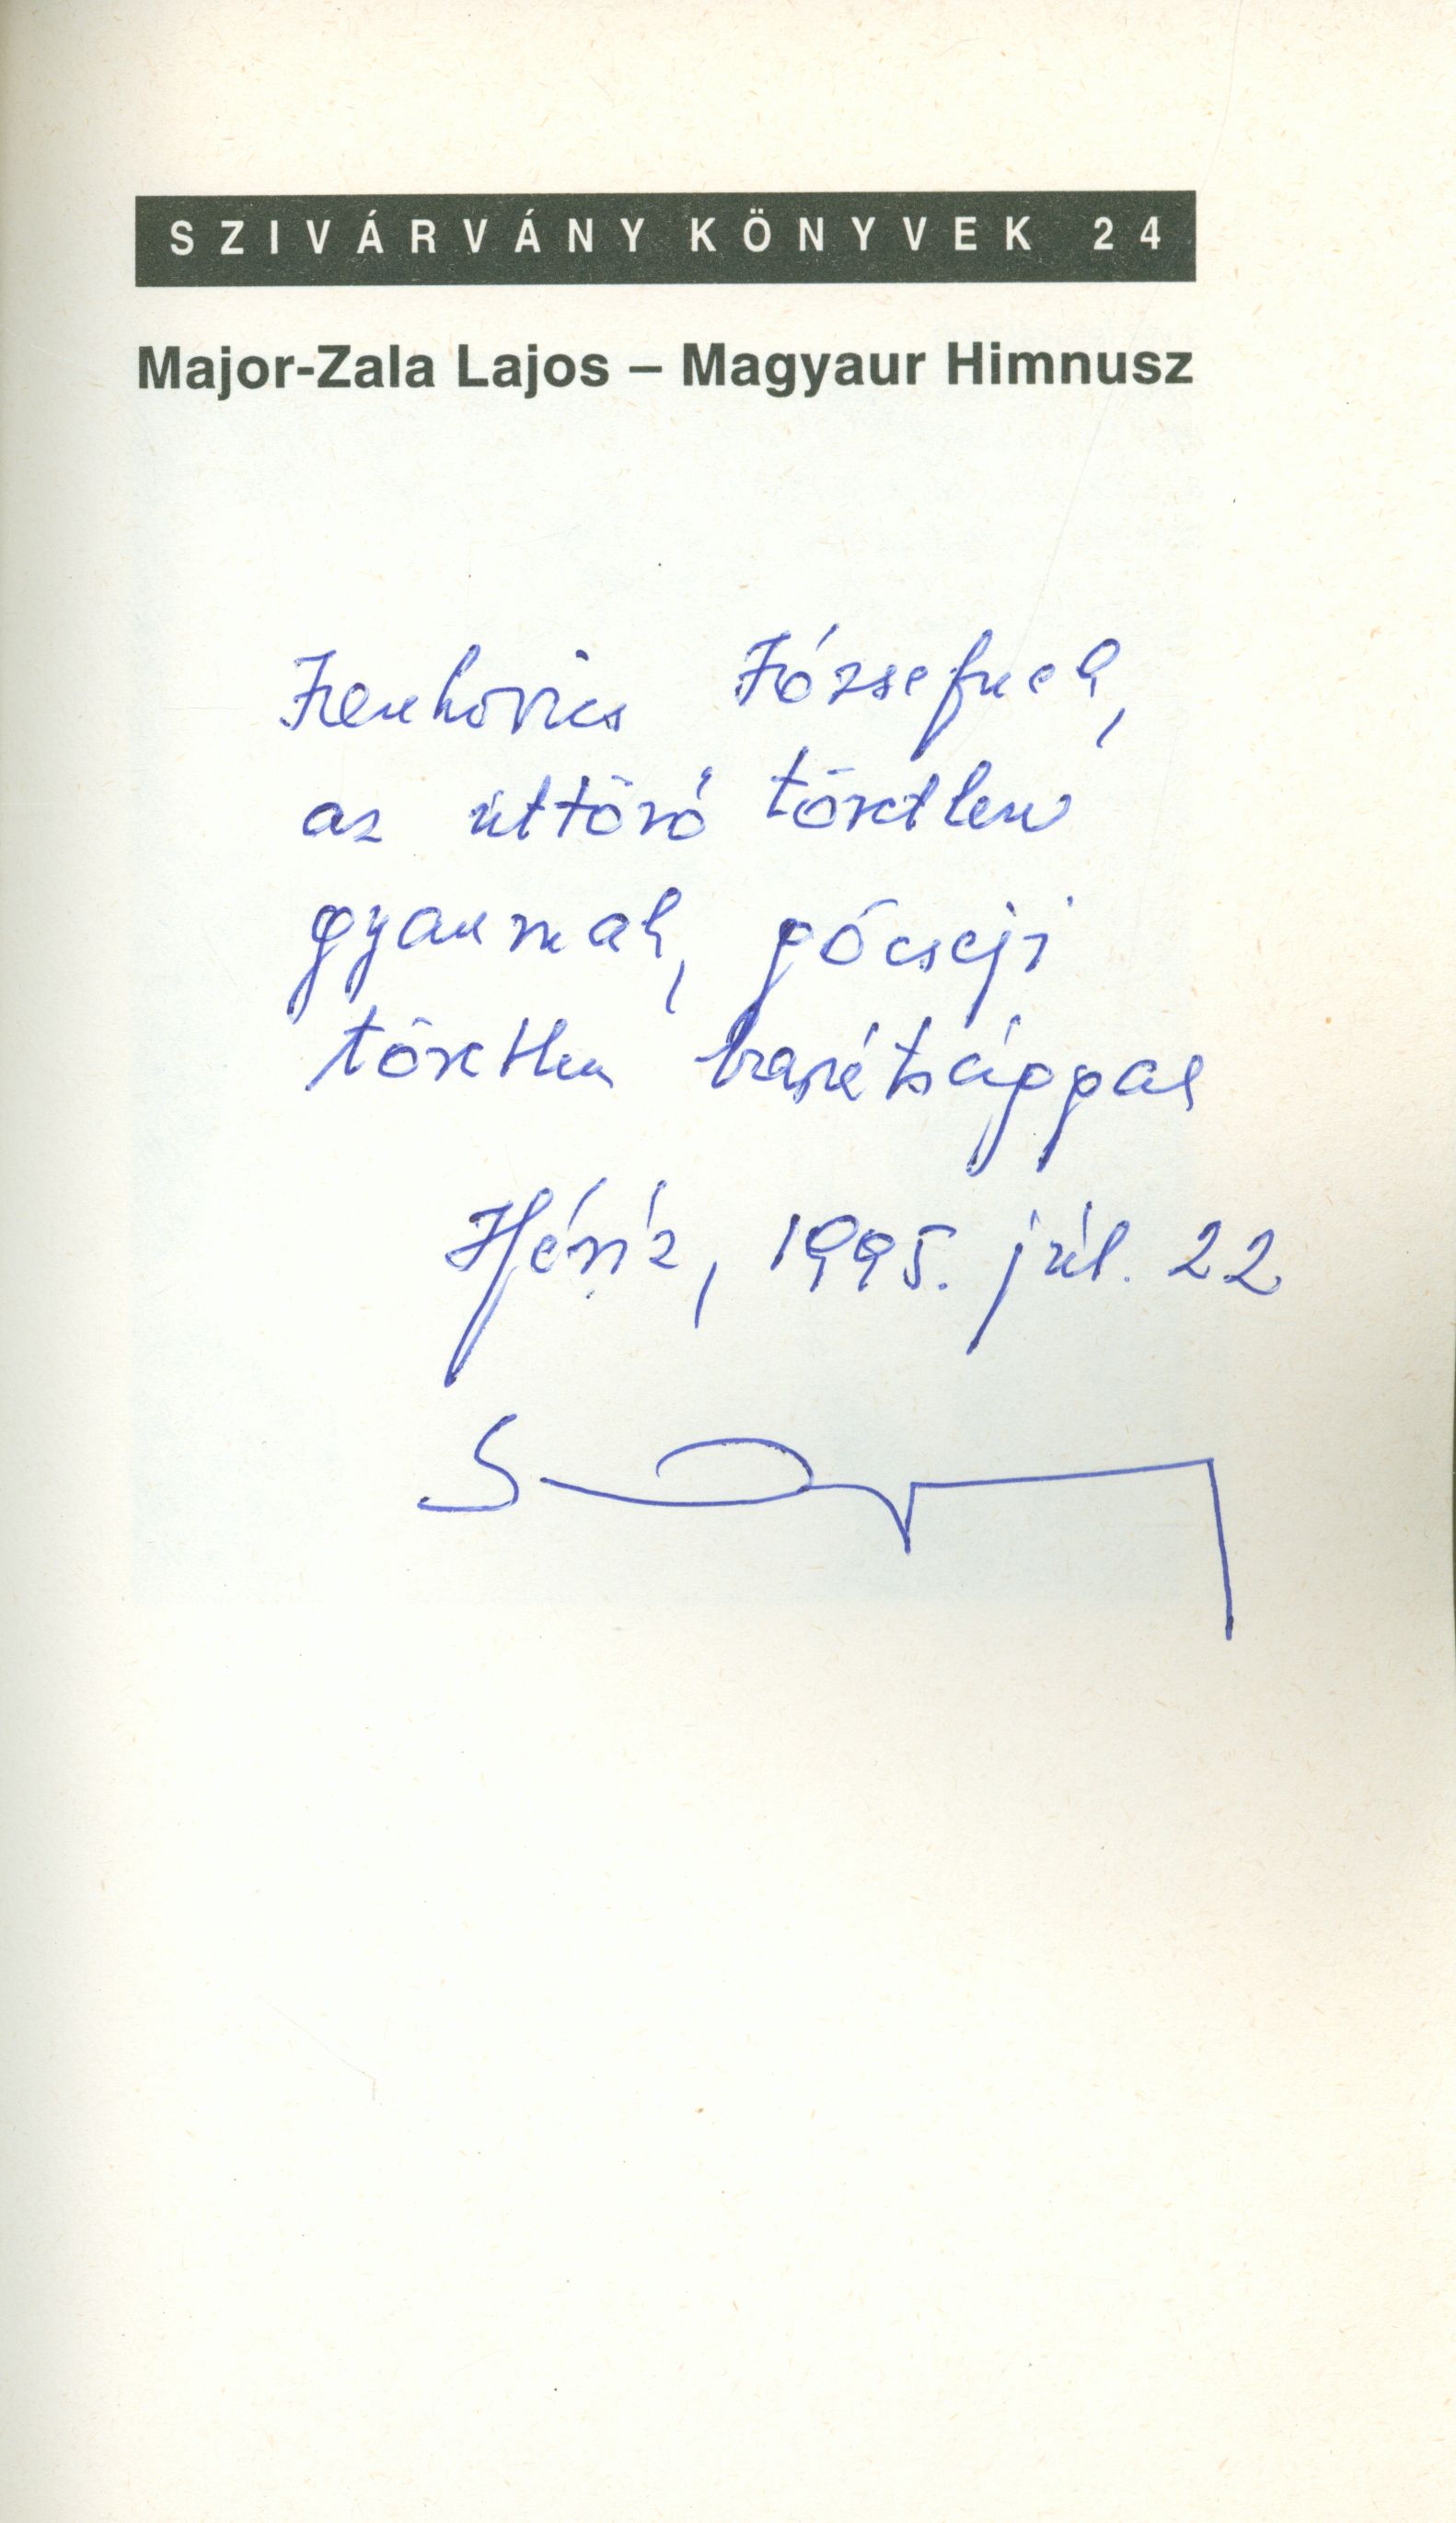 SZIVÁRVÁNY KÖNYVEK 24
Major-Zala Lajos – Magyaur Himnusz
Józsefnek,
az úttörő töretlen
göcseji
töretlen barátsággal
Hévíz, 1995. júl. 22